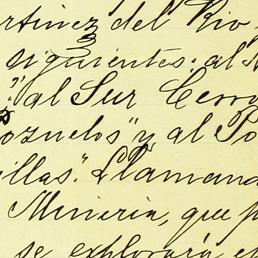 artinez del Rio
siguientes: al
" al Sur Cerro
ozuelos" y al Po
illas". Llamand
Mineria, que p
se explorará e